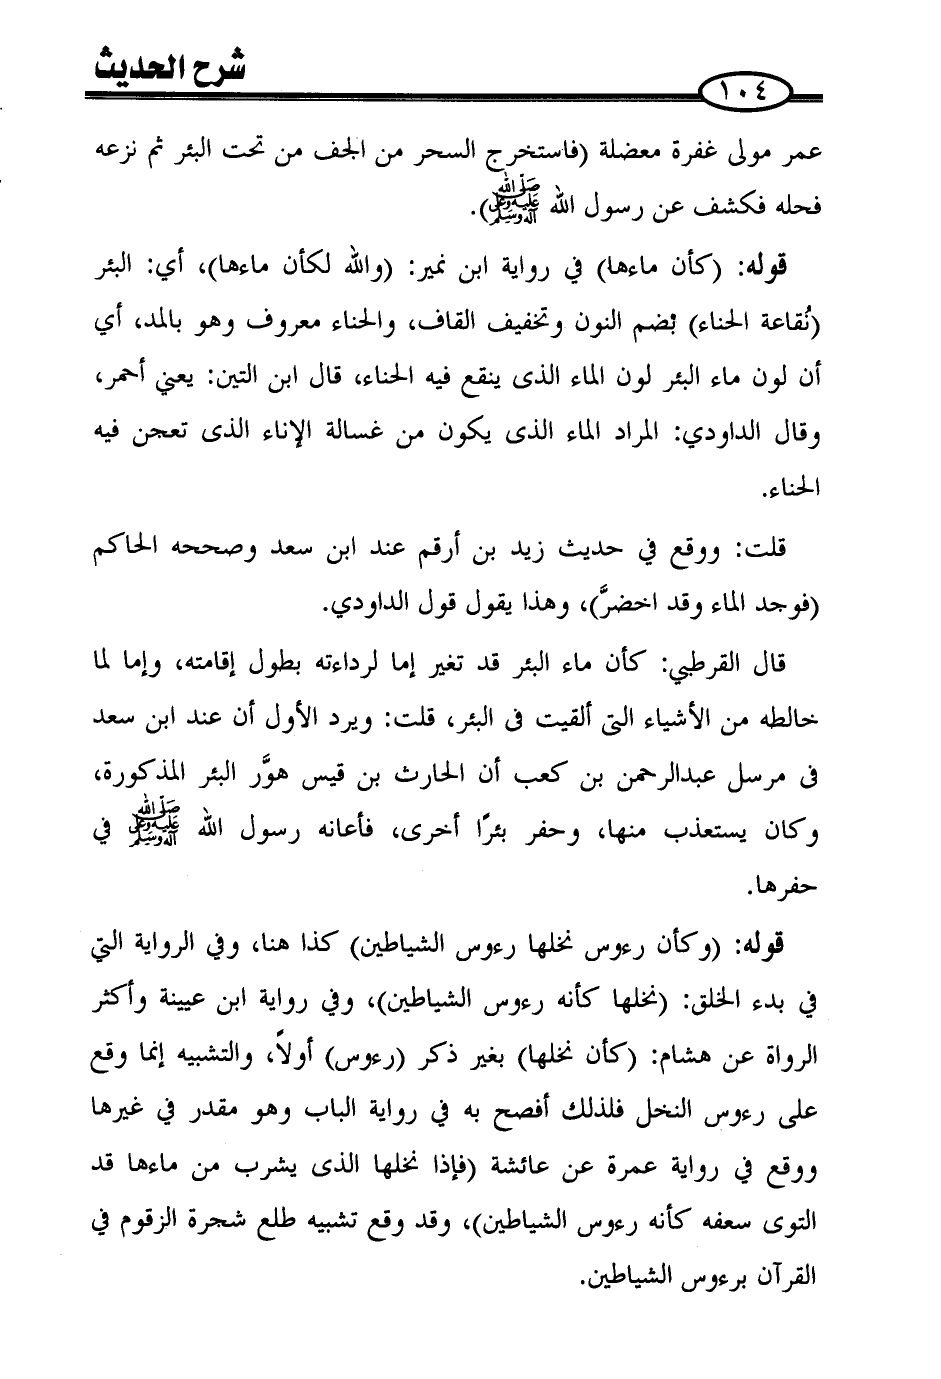 شرح الحديث
١٠٤
عمر مولى غفرة معضلة (فاستخرج السحر من الجف من تحت البئر ثم نزعه
فحله فكشف عن رسول الله ﷺ).
قوله: (كأن ماءها) في رواية ابن نمير: (والله لكأن ماءها)، أي: البئر
(نُقاعة الحناء) بضم النون وتخفيف القاف، والحناء معروف وهو بالمد، أي
أن لون ماء البئر لون الماء الذى ينقع فيه الحناء، قال ابن التين: يعني أحمر،
وقال الداودي: المراد الماء الذى يكون من غسالة الإناء الذى تعجن فيه
الحناء.
قلت: ووقع في حديث زيد بن أرقم عند ابن سعد وصححه الحاكم
(فوجد الماء وقد اخضرَّ)، وهذا يقول قول الداودي.
قال القرطبي: كأن ماء البئر قد تغير إما لرداءته بطول إقامته، وإما لما
خالطه من الأشياء التى ألقيت فى البئر، قلت: ويرد الأول أن عند ابن سعد
فى مرسل عبدالرحمن بن كعب أن الحارث بن قيس هوَّر البئر المذكورة،
وكان يستعذب منها، وحفر بئرًا أخرى، فأعانه رسول الله ﷺ في
حفرها.
قوله: (وكأن رءوس نخلها رءوس الشياطين) كذا هنا، وفي الرواية التي
في بدء الخلق: (نخلها كأنه رءوس الشياطين)، وفي رواية ابن عيينة وأكثر
الرواة عن هشام: (كأن نخلها) بغير ذكر (رءوس) أولاً، والتشبيه إنما وقع
على رءوس النخل فلذلك أفصح به في رواية الباب وهو مقدر في غيرها
ووقع في رواية عمرة عن عائشة (فإذا نخلها الذى يشرب من ماءها قد
التوى سعفه كأنه رءوس الشياطين)، وقد وقع تشبيه طلع شجرة الزقوم في
القرآن برءوس الشياطين.